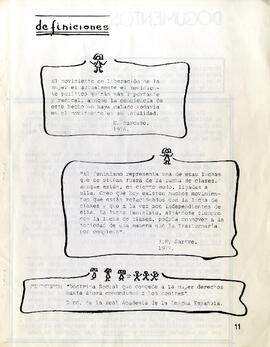 definiciones
El movimiento de liberación de la
mujer es actualmente el movimien-
to político quizás más importante
y radical, aunque la conciencia de
este hecho no haya calado todavía
en el movimiento en su totalidad.
H. Marcuse.
197
"El feminismo representa una de esas luchas
que se sitúan fuera de la lucha de clases,
aunque están, en cierto modo, ligadas a
ella. Creo que hoy existen muchos movimien-
tos que están relacionados con la lucha de
clases y que a la vez son independientes de
ella. La lucha feminista, aliándose siempre
con la lucha de clases, podría conmover a la
sociedad de una manera que la trastornaría
por completo".
J.P. Sartre.
1977.
"Doctrina Social que concede a la mujer derechos
hasta ahora concedidos a los hombres"
Dicc. de la Real Academia de la Lengua Española.
11